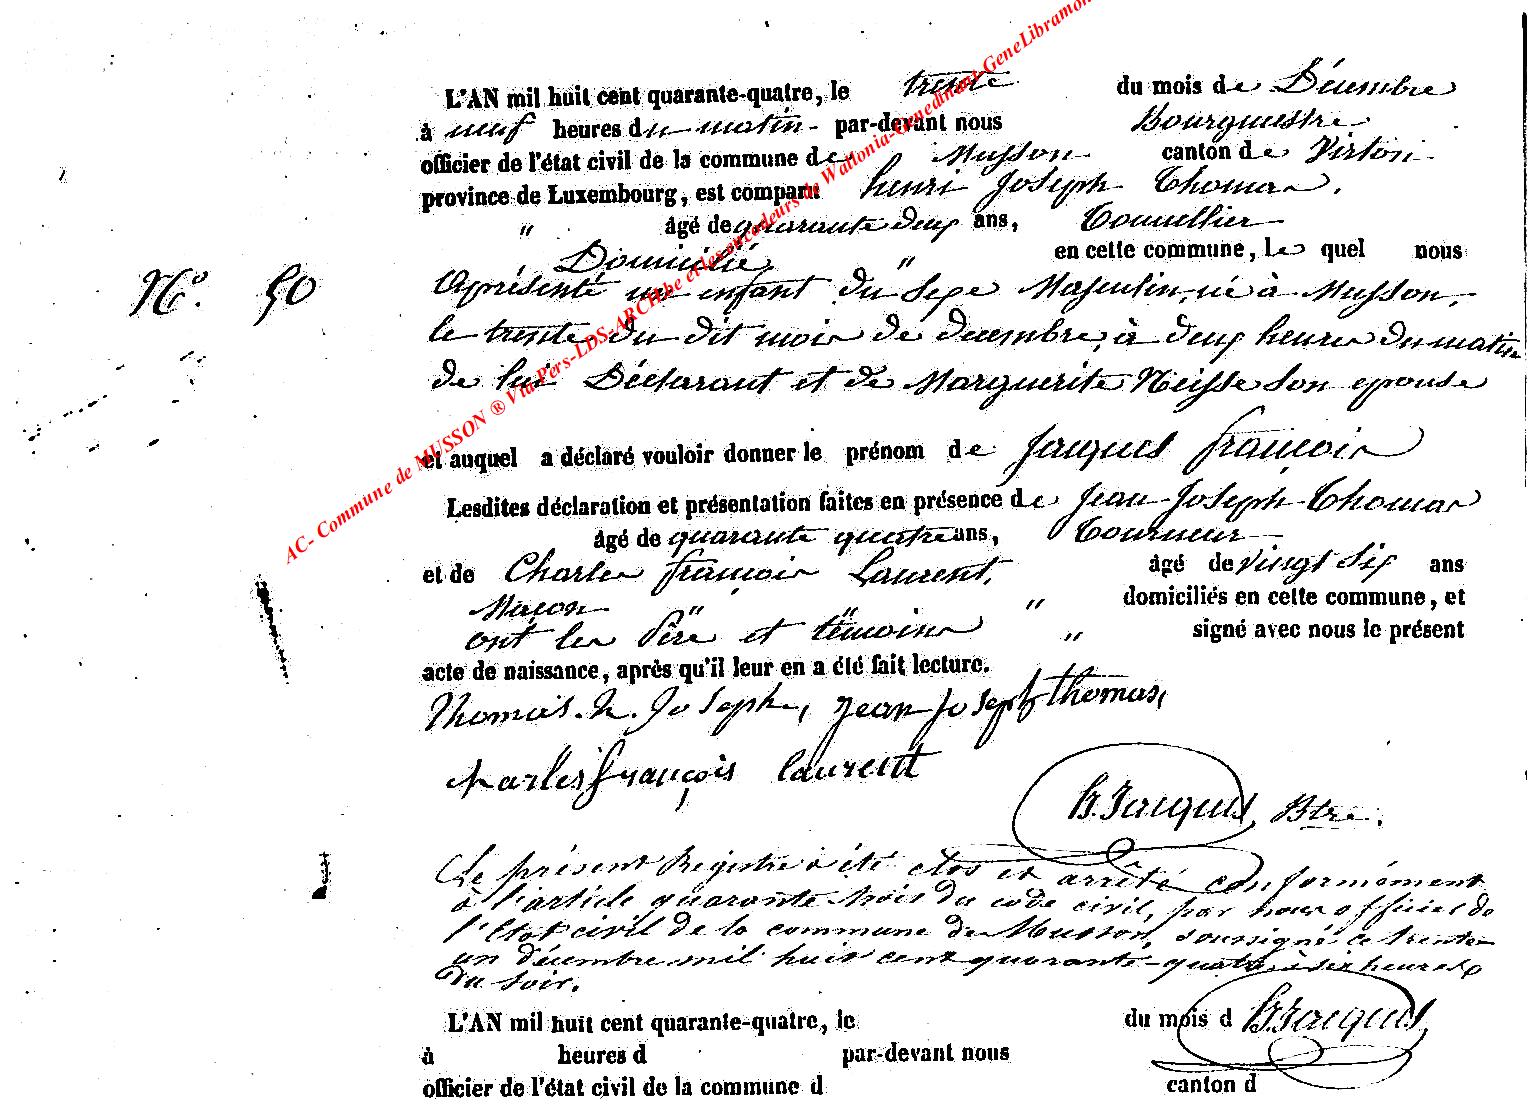 L'AN mil huit cent quarante-quatre, le trente du mois de Décembre
à neuf heures du matin - par-devant nous Bourgmestre
officier de l'état civil de la commune de Musson canton de Virton
province de Luxembourg, est comparu henri Joseph Thomas.
" âgé de quarante deux ans, Tonnellier
Domicilié " en cette commune, le quel nous
N° 50
a présenté un enfant du Sexe Masculin, né à Musson,
le trente du dit mois de decembre, à deux heures du matin
de lui Déclarant et de Marguerite Neisse son epouse
et auquel a déclaré vouloir donner le prénom de Jacques françois
Lesdites déclaration et présentation faites en présence de Jean Joseph Thomas
âgé de quarante quatre ans, Tourneur
et de Charles françois Laurent, âgé de vingt six ans
Maçon " domiciliés en cette commune, et
ont les Père et témoins " signé avec nous le présent
acte de naissance, après qu'il leur en a été fait lecture.
Thomas. h. Joseph, jean joseph thomas,
charles françois laurent
h. Jacques, Btre.
Le présent Registre a été clos et arrêté conformément
à l'article quarante trois du code civil, par nous officier de
l'Etat civil de la commune de Musson, soussigné ce trente
un décembre mil huit cent quarante-quatre à six heures
du soir.
H. Jacques,
L'AN mil huit cent quarante-quatre, le du mois d
à heures d par-devant nous
officier de l'état civil de la commune d canton d
AC- Commune de MUSSON ® Via Pers-LDS-ARCH.be et les encodeurs de Wallonia-Genedinant-GeneLibramon